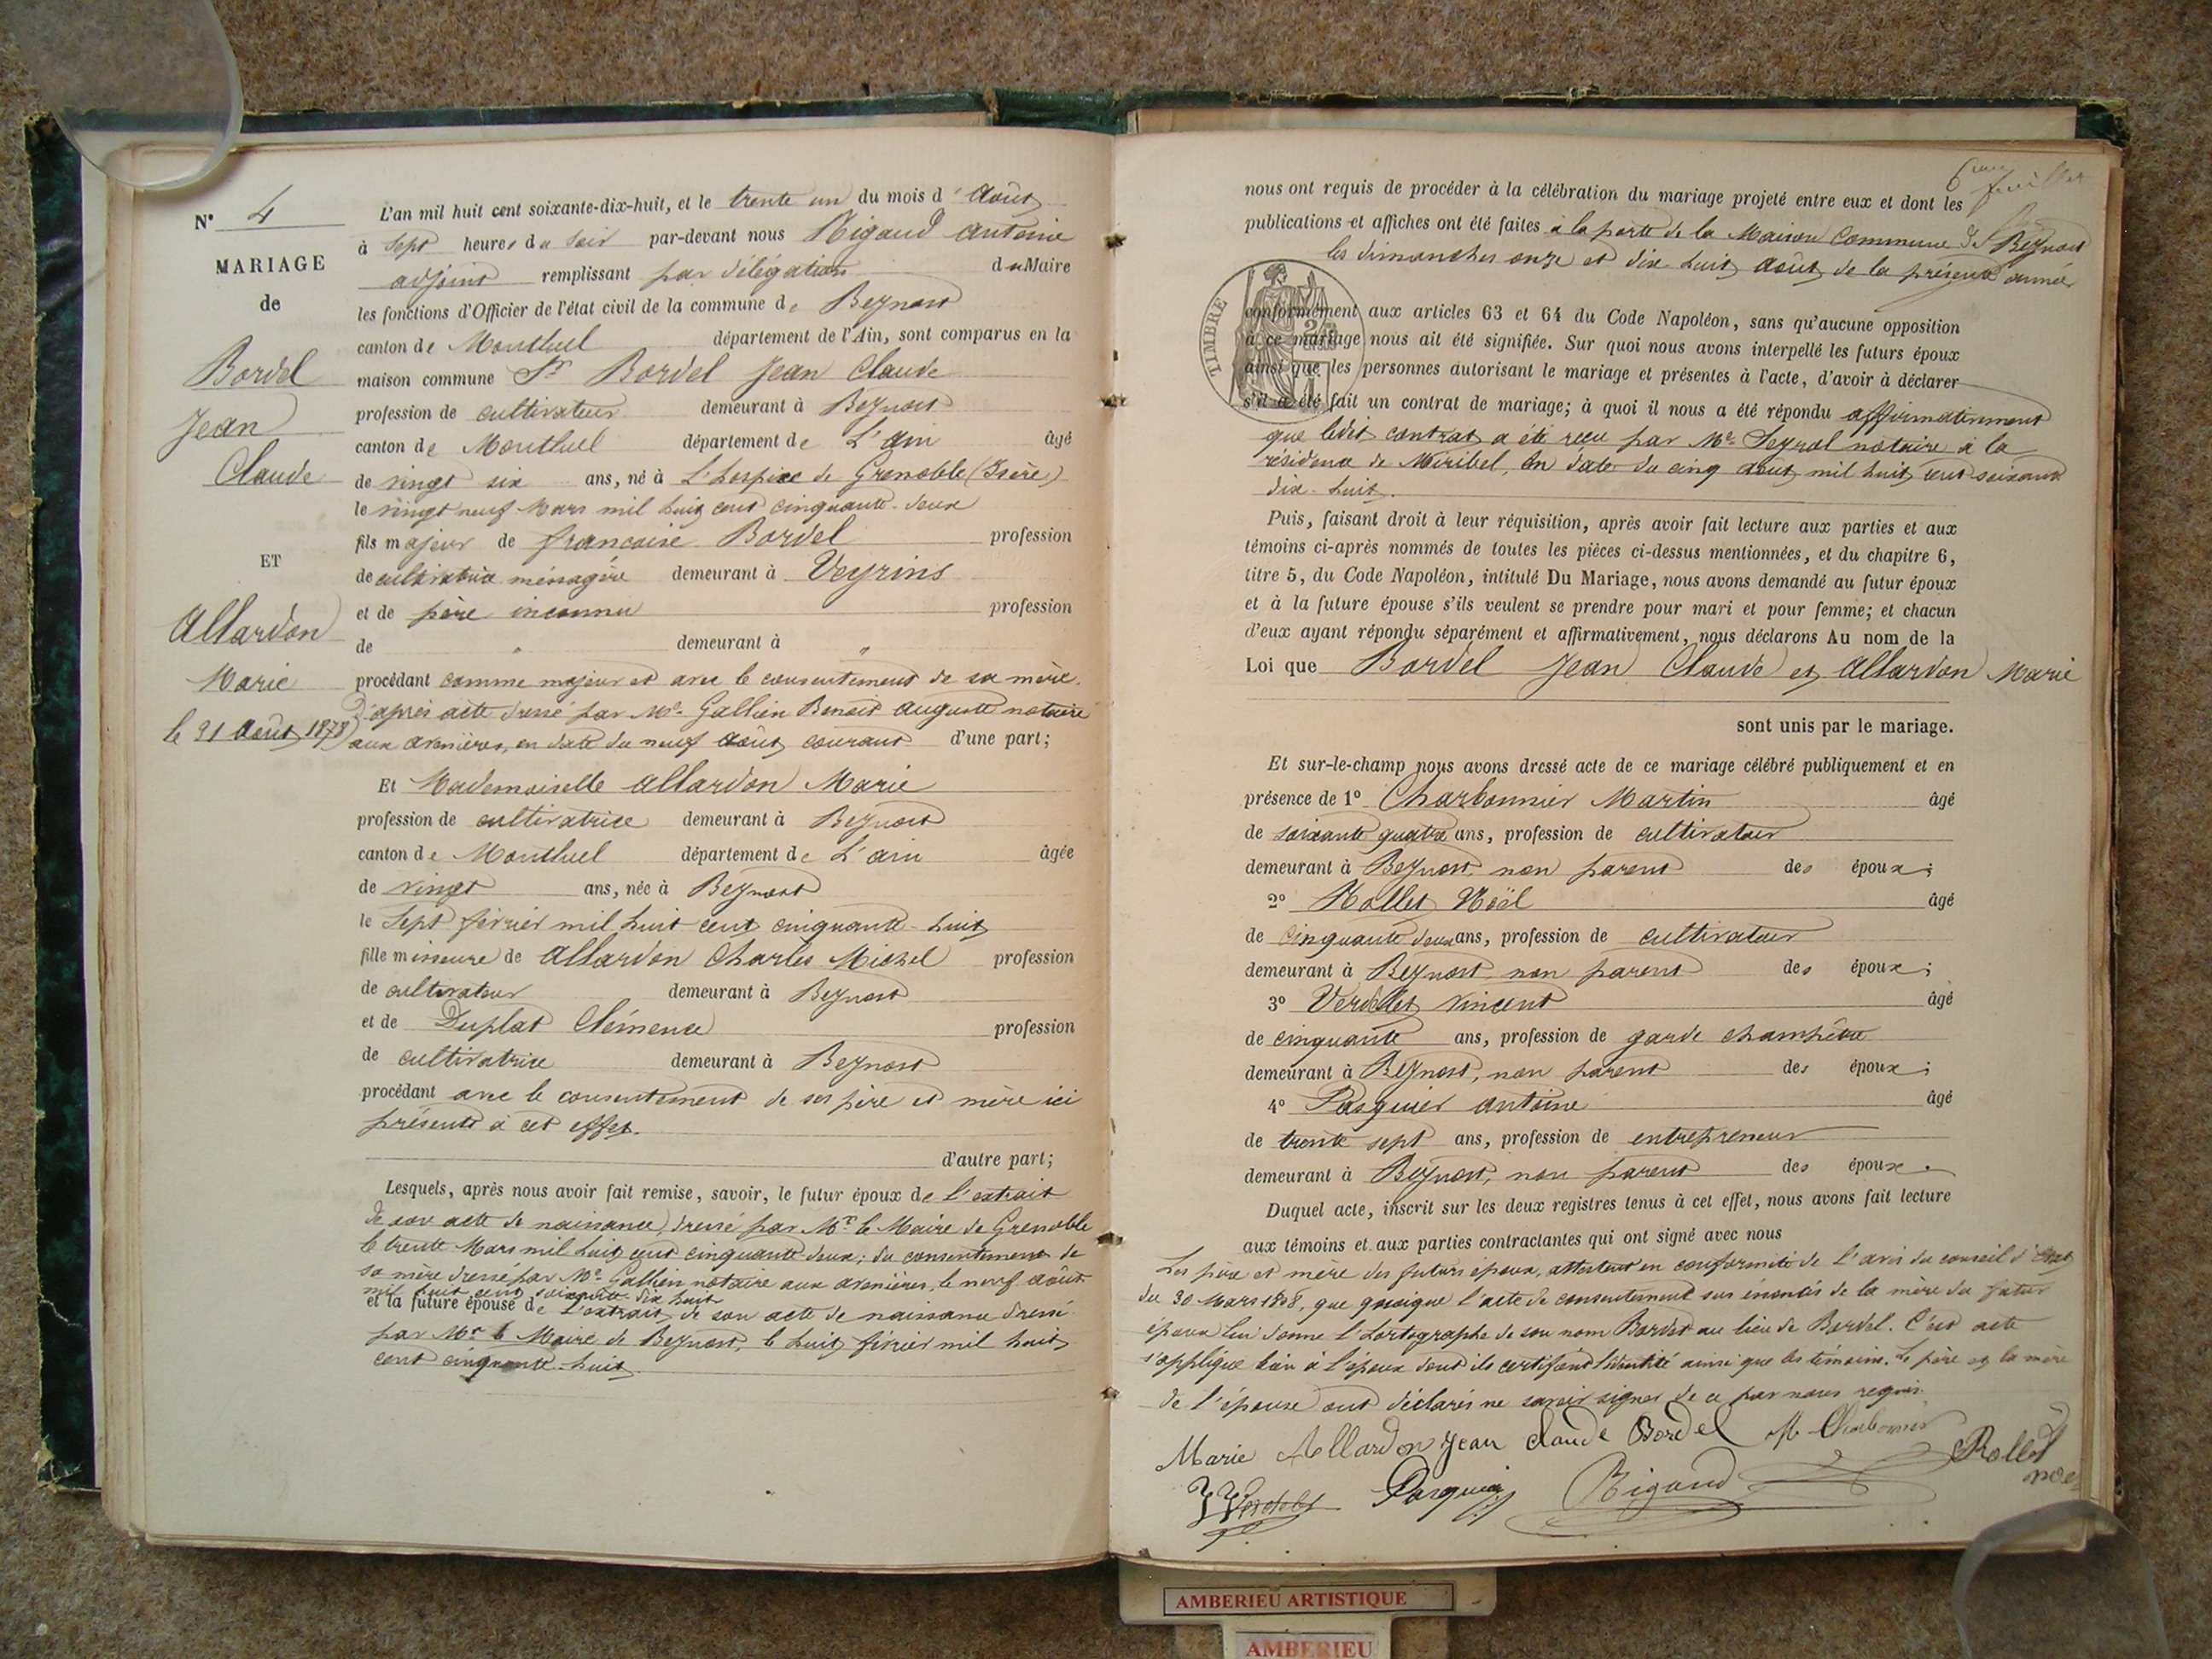 N° 4
MARIAGE
de
Bordel
Jean
Claude
ET
Allardon
Marie
le 31 Août 1878
L'an mil huit cent soixante-dix-huit, et le trente un du mois d'Août
à sept heures du soir par-devant nous Rigaud Antoine
adjoint remplissant par délégation du Maire
les fonctions d'Officier de l'état civil de la commune de Beynost
canton de Montluel département de l'Ain, sont comparus en la
maison commune Sr Bordel Jean Claude
profession de cultivateur demeurant à Beynost
canton de Montluel département de L'ain âgé
de vingt six ans, né à L'hospice de Grenoble (Isère)
le vingt neuf Mars mil huit cent cinquante-deux
fils majeur de francoise Bordel profession
de cultivatrice ménagère demeurant à Veyrins
et de père inconnu profession
de " demeurant à "
procédant comme majeur et avec le consentement de sa mère.
D'après acte dressé par Me. Gallien Benoit Auguste notaire
aux avenières, en date du neuf août courant d'une part;
Et Mademoiselle Allardon Marie
profession de cultivatrice demeurant à Beynost
canton de Montluel département de L'ain âgée
de vingt ans, née à Beynost
le Sept février mil huit cent cinquante-huit
fille mineure de Allardon Charles Michel profession
de cultivateur demeurant à Beynost
et de Duplat Clémence profession
de cultivatrice demeurant à Beynost
procédant avec le consentement de ses père et mère ici
présents à cet effet.
d'autre part;
Lesquels, après nous avoir fait remise, savoir, le futur époux de L'extrait
de son acte de naissance dressé par Mr. le Maire de Grenoble
le trente Mars mil huit cent cinquante deux; du consentement de
sa mère dressé par Me. Gallien notaire aux avenières, le neuf août
mil huit cent soixante-dix huit
et la future épouse de L'extrait de son acte de naissance dressé
par Mr le Maire de Beynost, le huit février mil huit
cent cinquante-huit.
6me feuillet
nous ont requis de procéder à la célébration du mariage projeté entre eux et dont les
publications et affiches ont été faites à la porte de la Maison Commune de Beynost
les dimanches onze et dix huit août de la présente année
TIMBRE
conformément aux articles 63 et 64 du Code Napoléon, sans qu'aucune opposition
à ce mariage nous ait été signifiée. Sur quoi nous avons interpellé les futurs époux
ainsi que les personnes autorisant le mariage et présentes à l'acte, d'avoir à déclarer
s'il a été fait un contrat de mariage; à quoi il nous a été répondu affirmativement
que ledit contrat a été reçu par Me. Seyrol notaire à la
résidence de Miribel, En date du cinq août mil huit cent soixante
dix-huit.
Puis, faisant droit à leur réquisition, après avoir fait lecture aux parties et aux
témoins ci-après nommés de toutes les pièces ci-dessus mentionnées, et du chapitre 6,
titre 5, du Code Napoléon, intitulé Du Mariage, nous avons demandé au futur époux
et à la future épouse s'ils veulent se prendre pour mari et pour femme; et chacun
d'eux ayant répondu séparément et affirmativement, nous déclarons Au nom de la
Loi que Bordel Jean Claude et Allardon Marie
sont unis par le mariage.
Et sur-le-champ nous avons dressé acte de ce mariage célébré publiquement et en
présence de 1° Charbonnier Martin âgé
de soixante quatre ans, profession de cultivateur
demeurant à Beynost, non parent des époux;
2° Rollet Noël âgé
de cinquante deux ans, profession de cultivateur
demeurant à Beynost, non parent des époux;
3° Verdellet Vincent âgé
de cinquante ans, profession de garde champêtre
demeurant à Beynost, non parent des époux;
4° Pasquier Antoine âgé
de trente sept ans, profession de entrepreneur
demeurant à Beynost, non parent des époux.
Duquel acte, inscrit sur les deux registres tenus à cet effet, nous avons fait lecture
aux témoins et aux parties contractantes qui ont signé avec nous
Les père et mère des futurs époux, attestent en conformité de l'avis du conseil d'Etat
du 30 Mars 1808, que quoique l'acte de consentement sus énoncés de la mère du futur
époux lui donne l'hortographe de son nom Bordet au lieu de Bordel. C'est acte
s'applique bien à l'époux dont ils certifient l'identité ainsi que les témoins. Le père et la mère
de l'épouse ont déclarés ne savoir signer de ce par nous requis
Marie Allardon Jean Claude Bordel M Charbonnier
Rollet noel
Pasquier Rigaud
AMBERIEU ARTISTIQUE
AMBERIEU